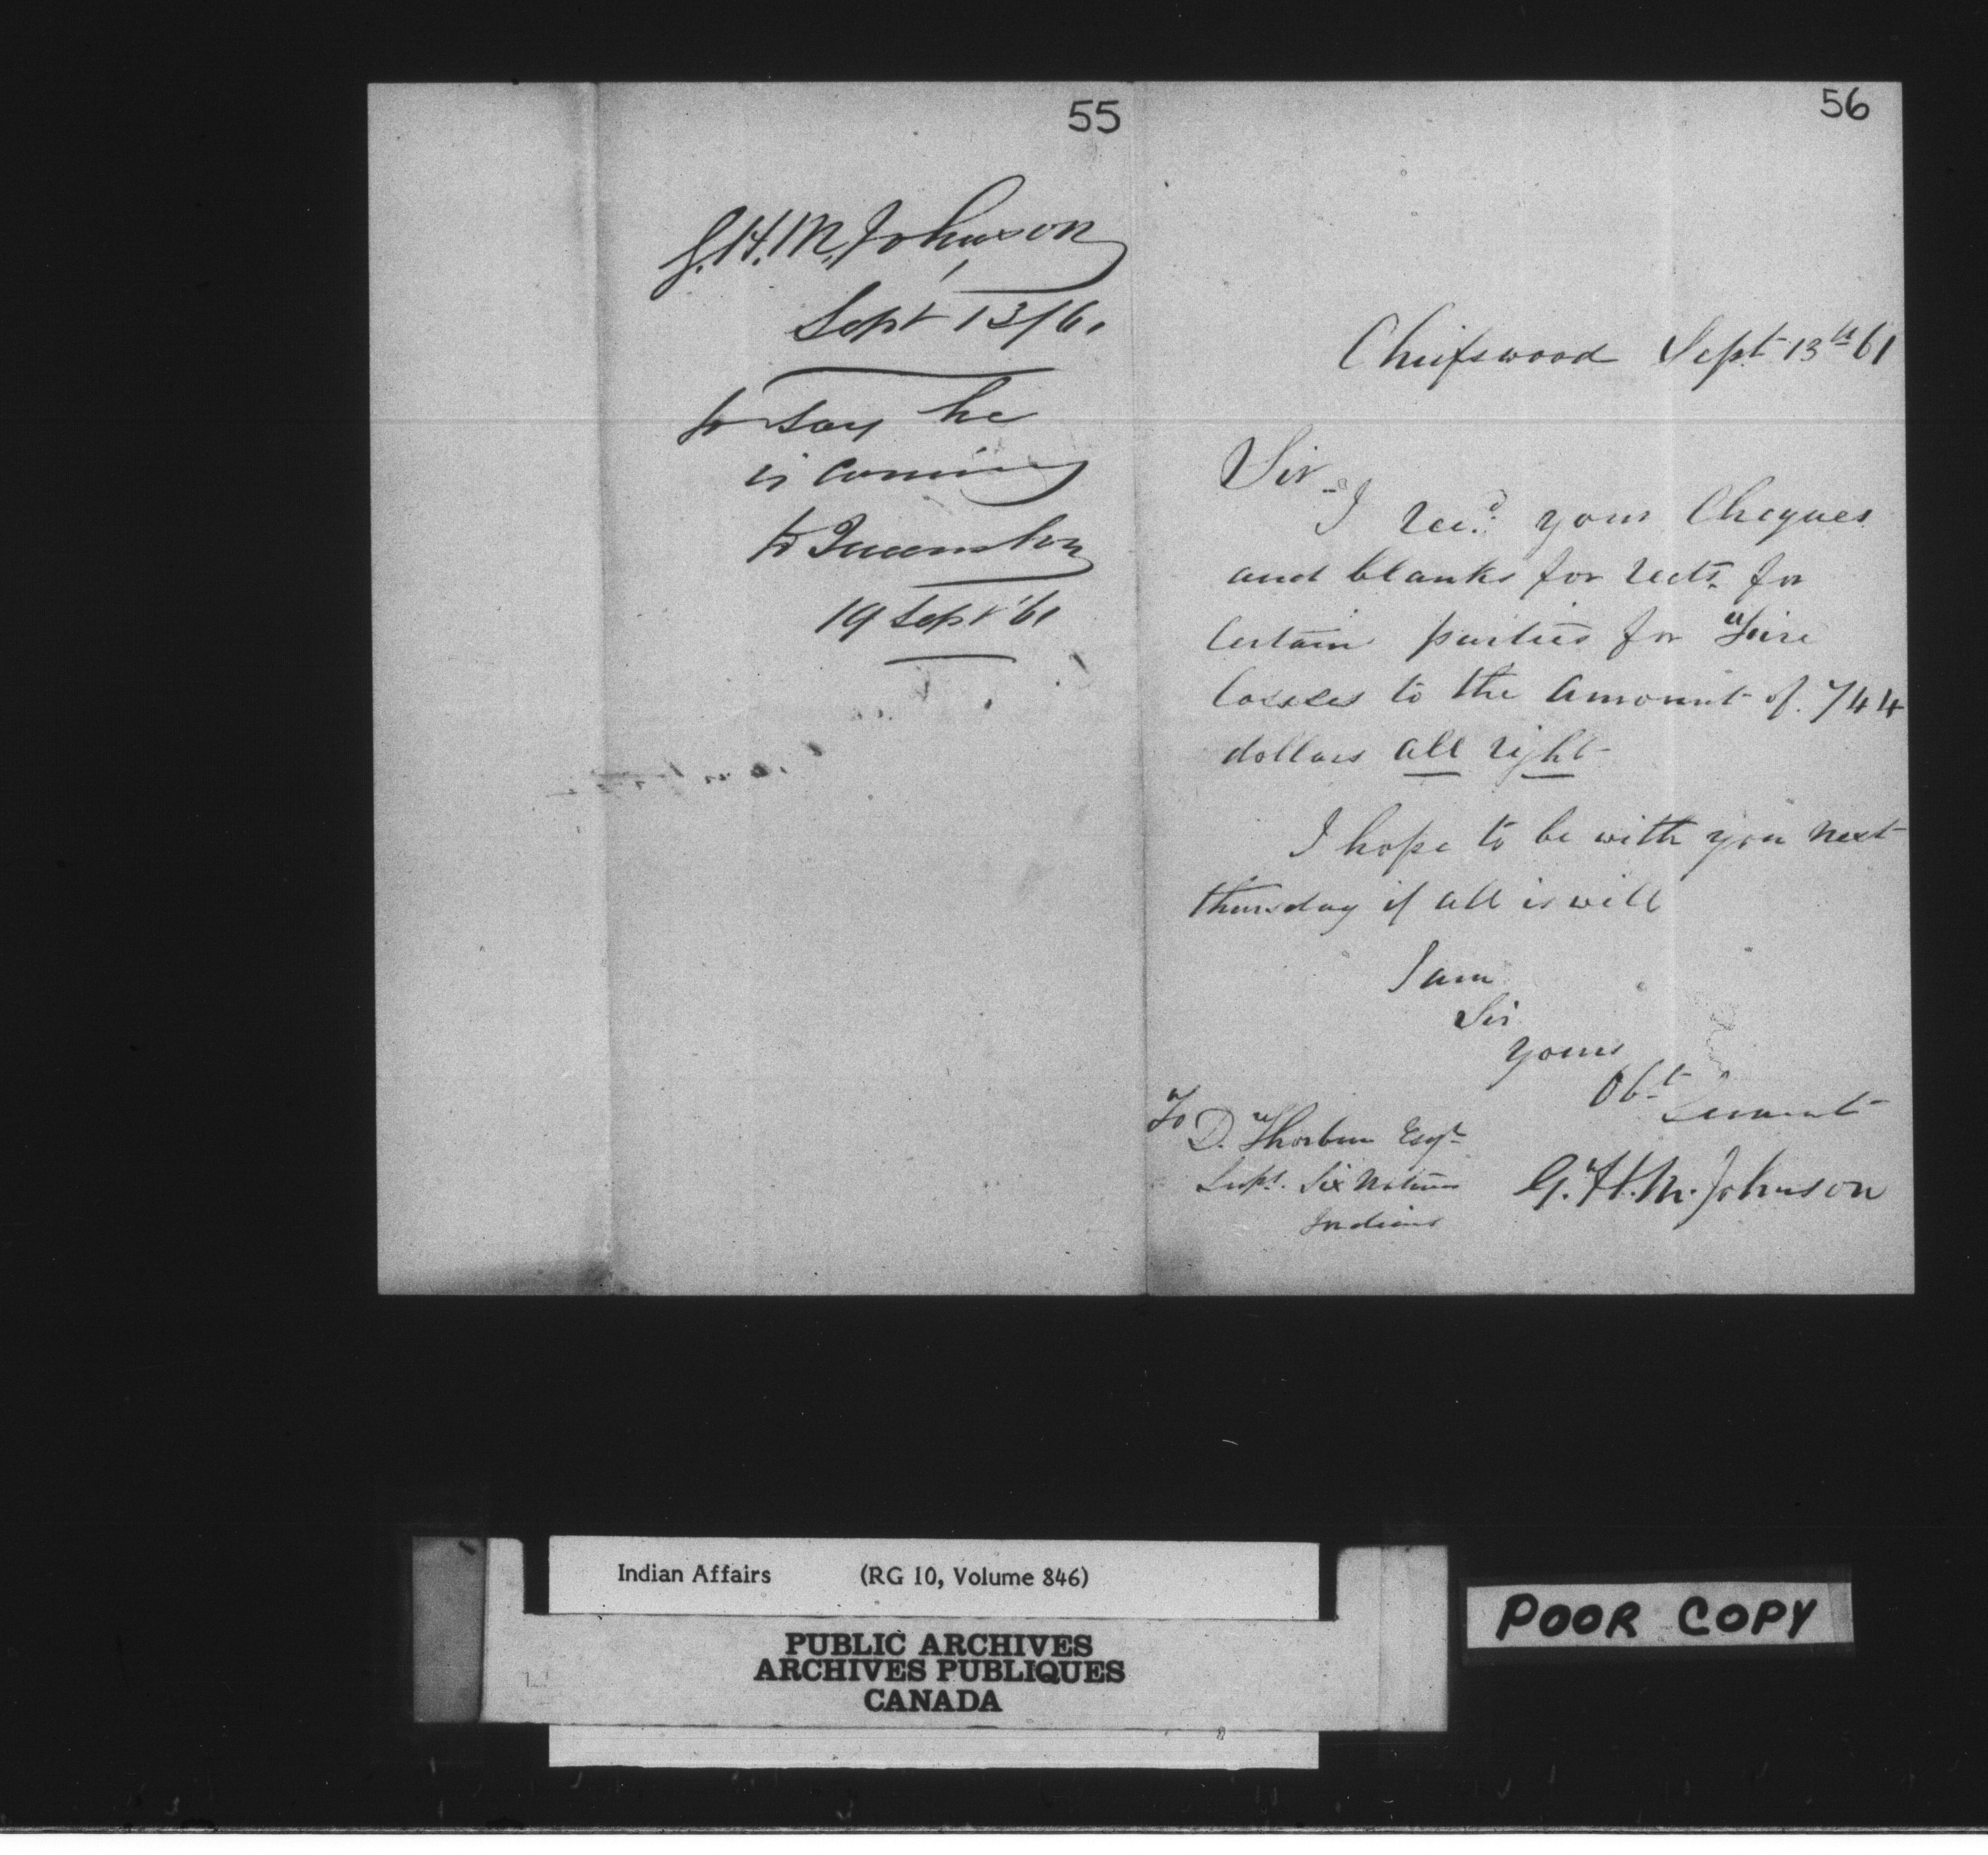 55
G.H.M. Johnson
Sept 13/61
to say he
is coming
to Queenston
19 Sept '61
56
Chiefswood Sept 13th 61
Sir
I recd. your Cheques
and blanks for rects. for
Certain parties for Fire
losses to the amount of 744
dollars all right
I hope to be with you next
thursday if all is well
I am
Sir
yours
Obt
Servant
To D. Thorburn Esqr
Supt. Six Nations
Indians
G.H.M. Johnson
Indian Affairs (RG 10, Volume 846)
PUBLIC ARCHIVES
ARCHIVES PUBLIQUES
CANADA
POOR COPY